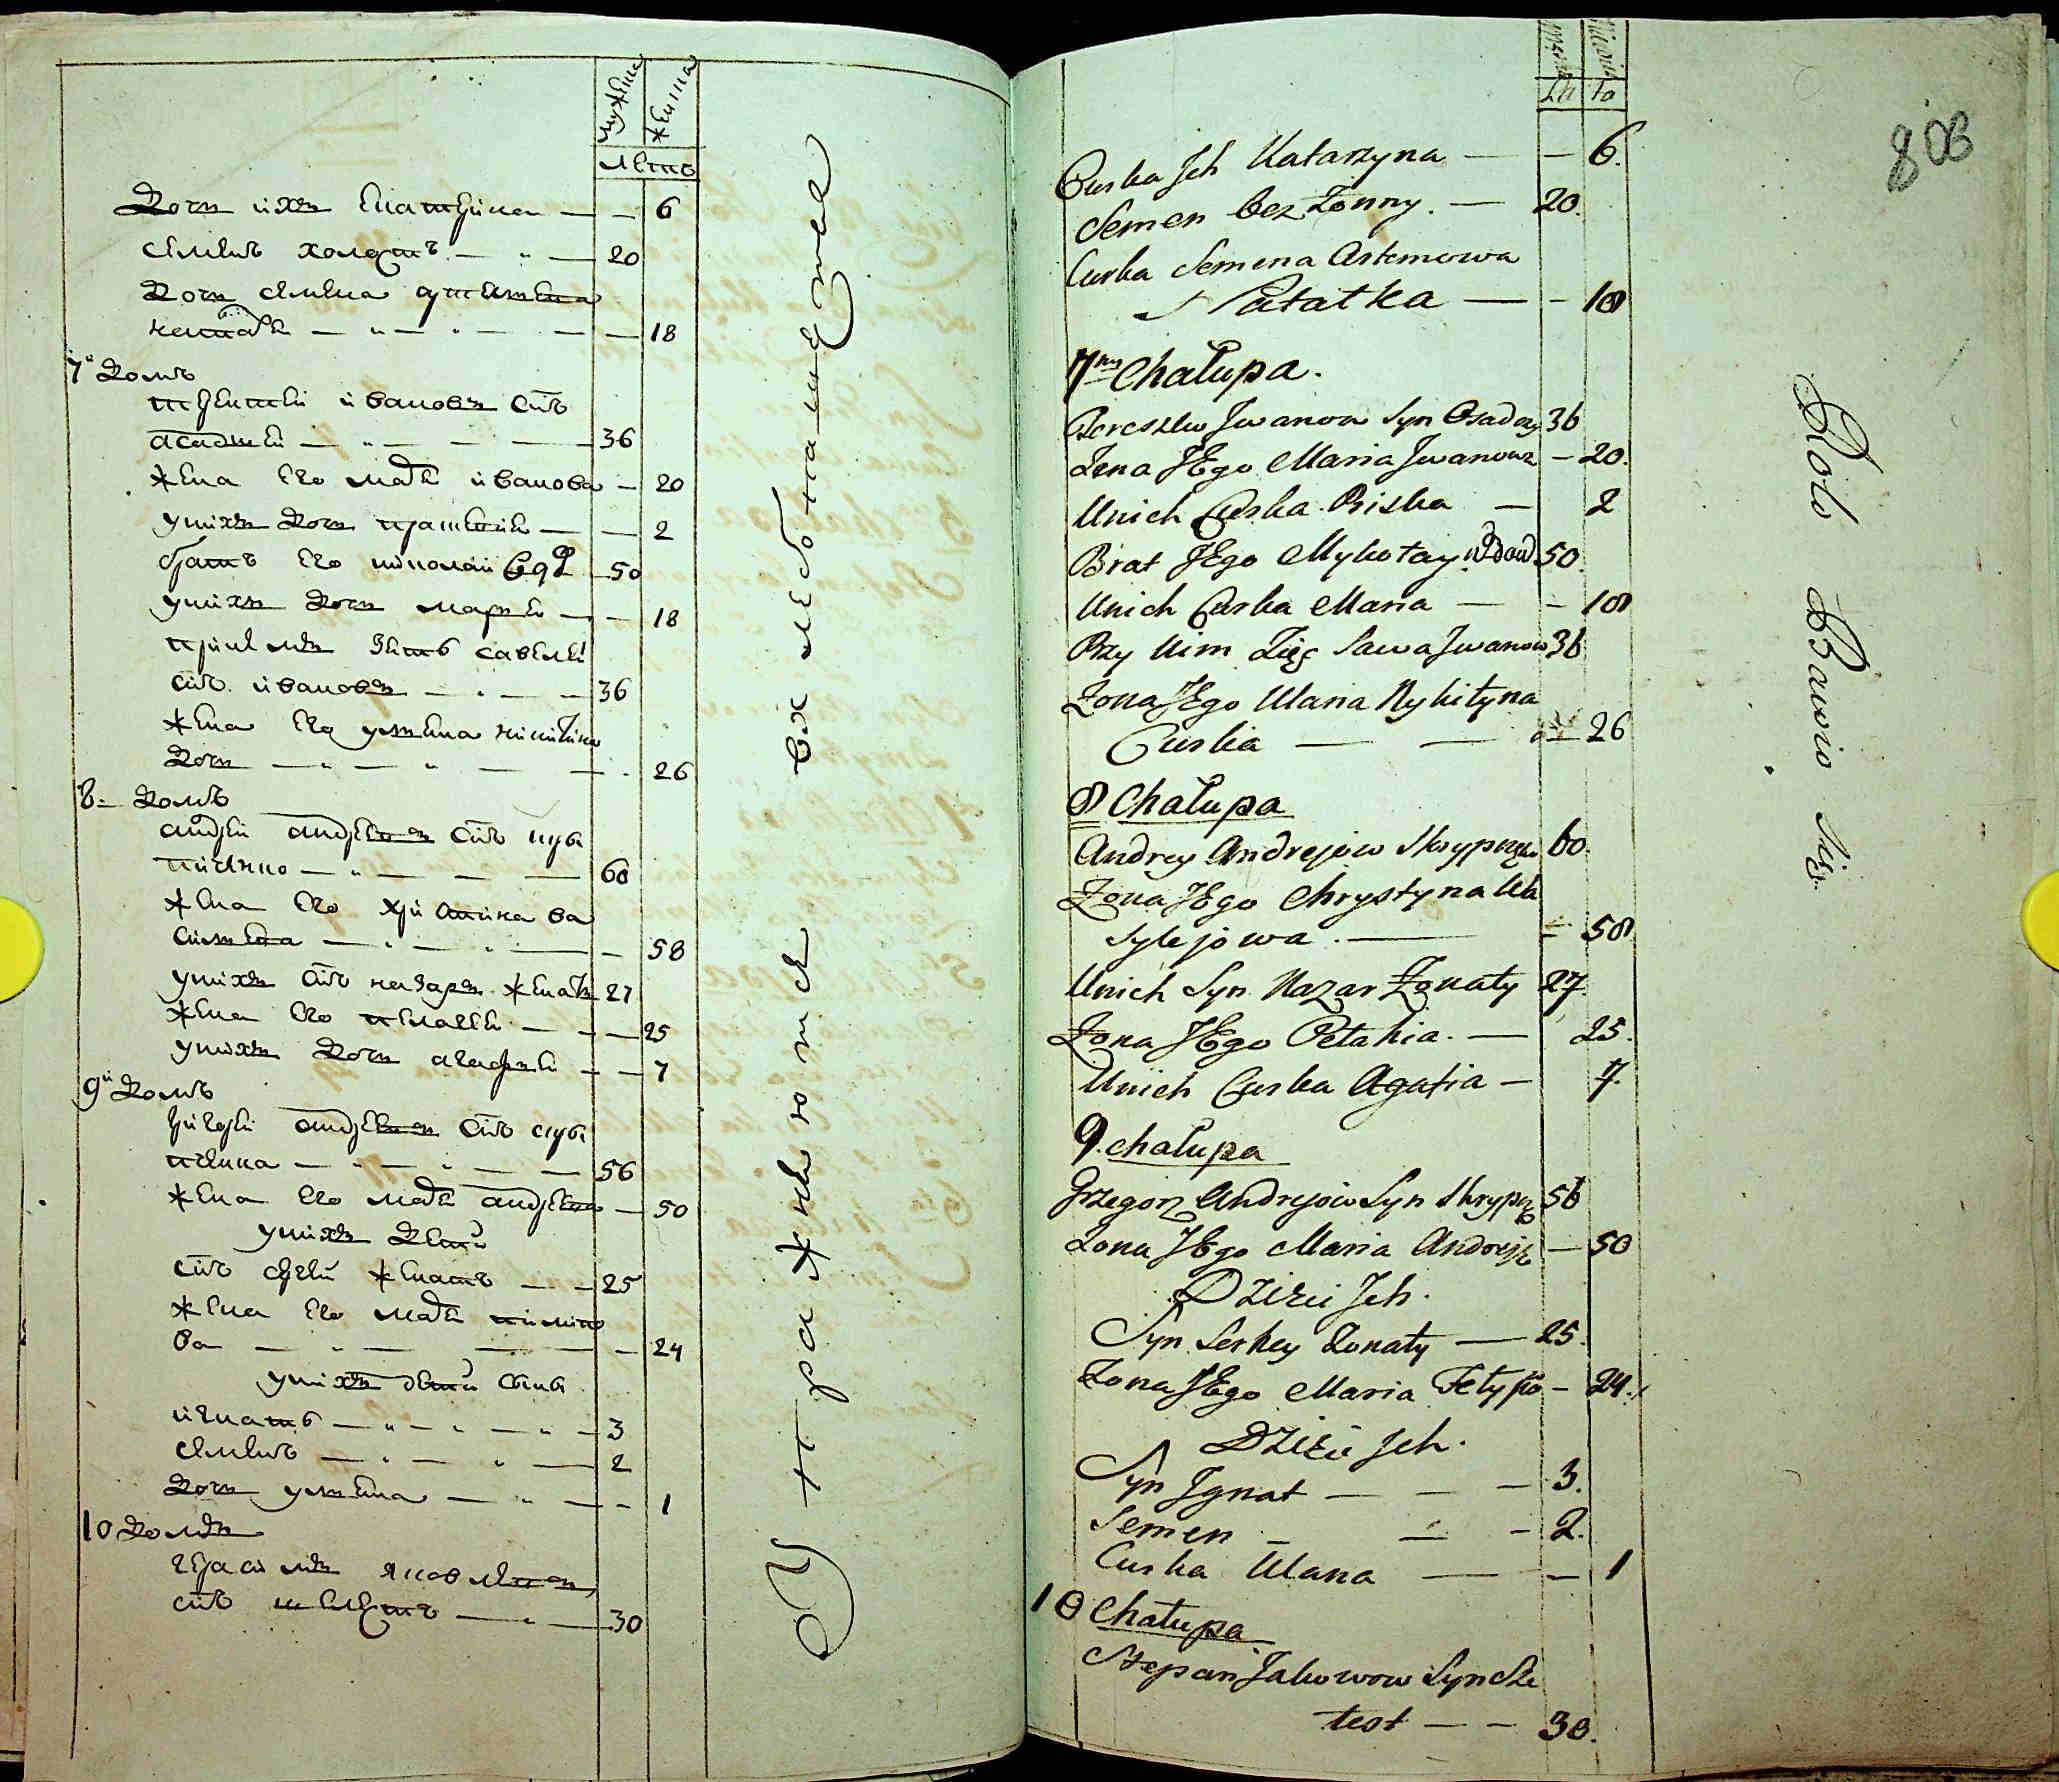 мужеска
женска
летъ
Дочь ихъ Екатерина — — 6
Семенъ холостъ — 20
Дочь Семена артемена
— — 18
7й Домъ
Ивановъ сынъ
осадчей — 36
Жена его Марія Иванова — 20
у нихъ дочь — — 2
братъ его Николай — 50
у нихъ дочь Марья — — 18
при немъ зять савелей
сынъ Ивановъ — 36
Жена его улиена никитина
Дочь — — 26
8 — Домъ
андрей андреевъ сынъ
— 60
Жена его Христина ва
— — 58
у нихъ сынъ назаръ женатъ 27
Жена его пелагея — — 25
у нихъ Дочь агафия — — 7
9й Домъ
григорей андреевъ сынъ скры
пченка — 56
Жена его Марія андреева — 50
у нихъ Дети
сынъ сергей женатъ — 25
Жена его Марія
ва — — 24
у нихъ дети сыны
игнатъ — 3
Семенъ — 2
Дочь улиена — — 1
10 Домъ
герасимъ яковлевъ
сынъ шелестъ — 30
У п р а ж н я ю т с я в х л е б о п а ш е с т в е
Lat
Curka Ich Katarzyna — — 6.
Semen bez Zonny. — 20.
Curka Semena Artemowa
Natatka — — 18
7my Chałupa.
Tereszko Iwanow Syn Osadczy 36
Zena JEgo Maria Iwanowa — 20.
Unich Curka Priska — 2
Brat JEgo Mykołay Wdow 50.
Unich Curka Maria — — 18
Przy Nim Zięć Sawa Iwanow 36
Zona JEgo Ulana Nykityna
Curka — — 26
8 Chałupa
Andrey Andrejow Skrypczenko 60.
Zona JEgo Chrystyna Wa
sylejowa. — — 58
Unich Syn Nazar Zonaty 27.
Zona JEgo Pełahia. — 25.
Unich Curka Agafia — 7.
9. Chałupa
Grzegorz Andrejow Syn Skrypcz 56
Zona JEgo Maria Andrejo — 50
Dzieci Ich.
Syn Serhey Zonaty — 25.
Zona JEgo Maria Fełypo — 24.
Dzieci Ich.
Syn Ignat — — — 3.
Semen — — — 2.
Curka Ulana — — 1
10 Chałupa
Stepan Jakowow Syn Sze
lest — — 30.
Rolo Bawio Się.
808